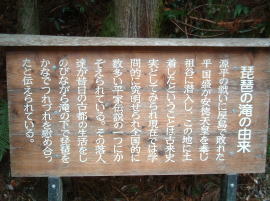 琵琶の滝の由来
源平の戦いに屋島で敗れた
平国盛が安徳天皇を奉じ
祖谷に潜入し、この地に土
着したということは古来史
実としてみられ現在では学
問的に究明され全国的に
数多い平家伝説の一つにか
ぞえられている。その落人
達が昔日の古都の生活をし
のびながら滝の下で琵琶を
かなでつれづれを慰め合っ
たと伝えられている。